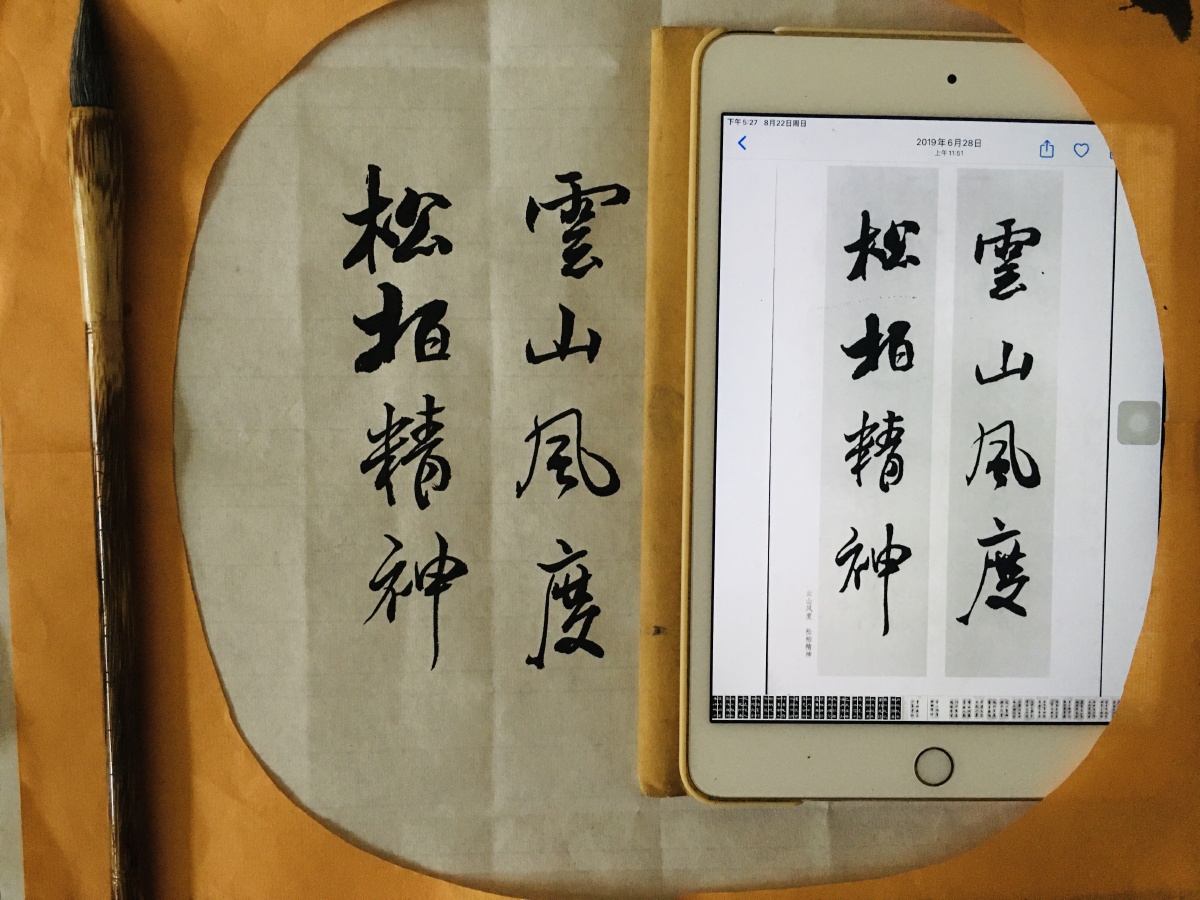 雲山風度
松柏精神
下午5:27 8月22日周日
2019年6月28日
上午11:51
雲山風度
松柏精神
云山风度 松柏精神